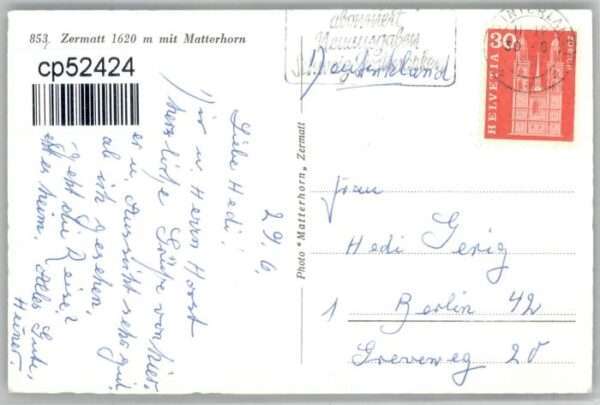 853. Zermatt 1620 m mit Matterhorn
cp52424
abonniert
Neuausgaben
HELVETIA
30
Photo "Matterhorn" Zermatt
29.6.
Liebe Hedi!
Dir u. Herrn Horst
herzliche Grüße von hier.
u. Aussicht sehr gut
ab ich gesehen.
geht die Reise
heim. Alles Gute,
Heiner.
Frau
Hedi Gerig
1 Berlin 42
Greveweg 20